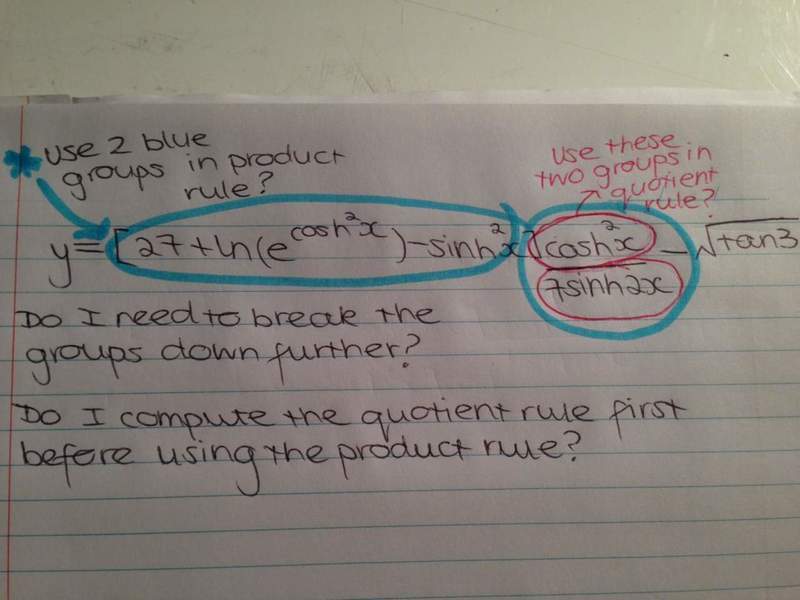 * use 2 blue
groups in product
rule?
use these
two groups in
quotient
rule?
y = [27 + ln(e^cosh²x) - sinh²x] cosh²x / 7sinh2x - √tan3
Do I need to break the
groups down further?
Do I compute the quotient rule first
before using the product rule?